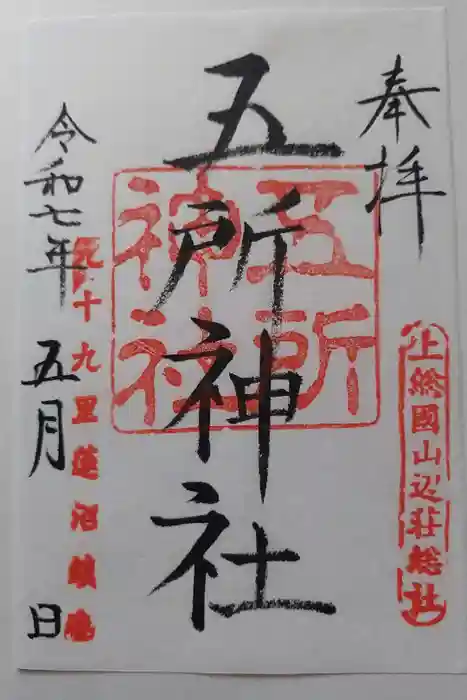 奉拝
上総國山辺荘総社
五所神社
五所
神社
九十九里蓮沼鎮座
令和七年五月 日